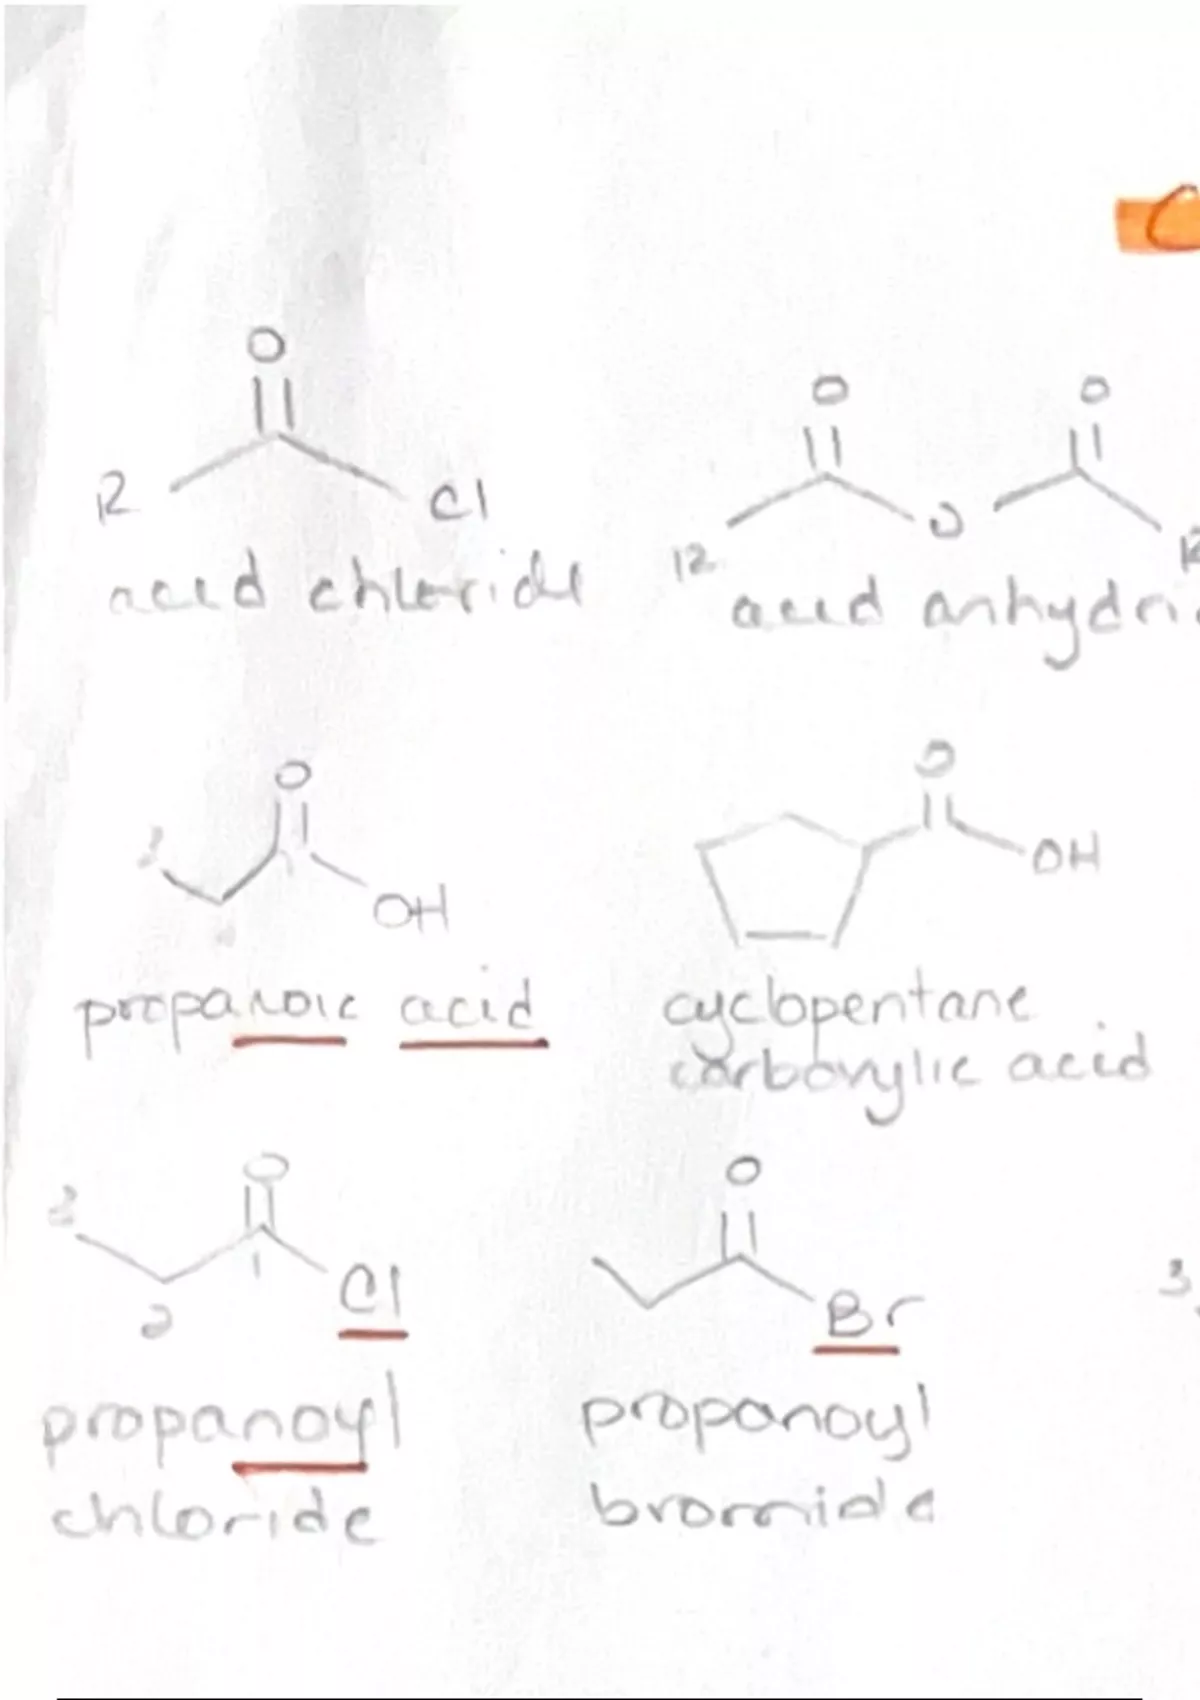 O
O O
R Cl
R O R
acid chloride
acid anhydri
O
O
3
OH
OH
propanoic acid
cyclopentane
carboxylic acid
O
O
3
1
2
Cl
Br
3
propanoyl
chloride
propanoyl
bromide